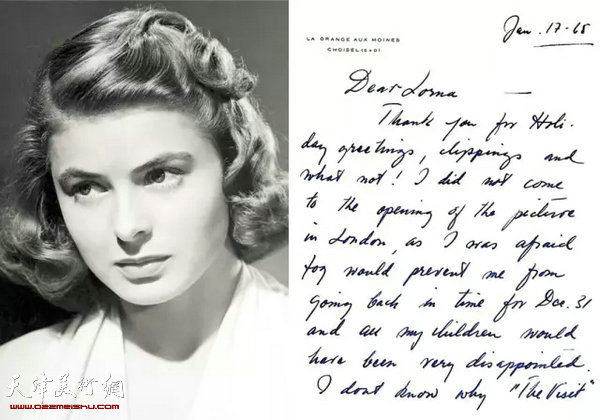 Jan. 17-65
LA GRANGE AUX MOINES
CHOISEL (S & O)
Dear Lorna —
Thank you for Holi-
day greetings, clippings and
what not! I did not come
to the opening of the picture
in London, as I was afraid
fog would prevent me from
going back in time for Dec. 31
and all my children would
have been very disappointed.
I dont know why "The Visit"
天津美术網
www.022meishu.com